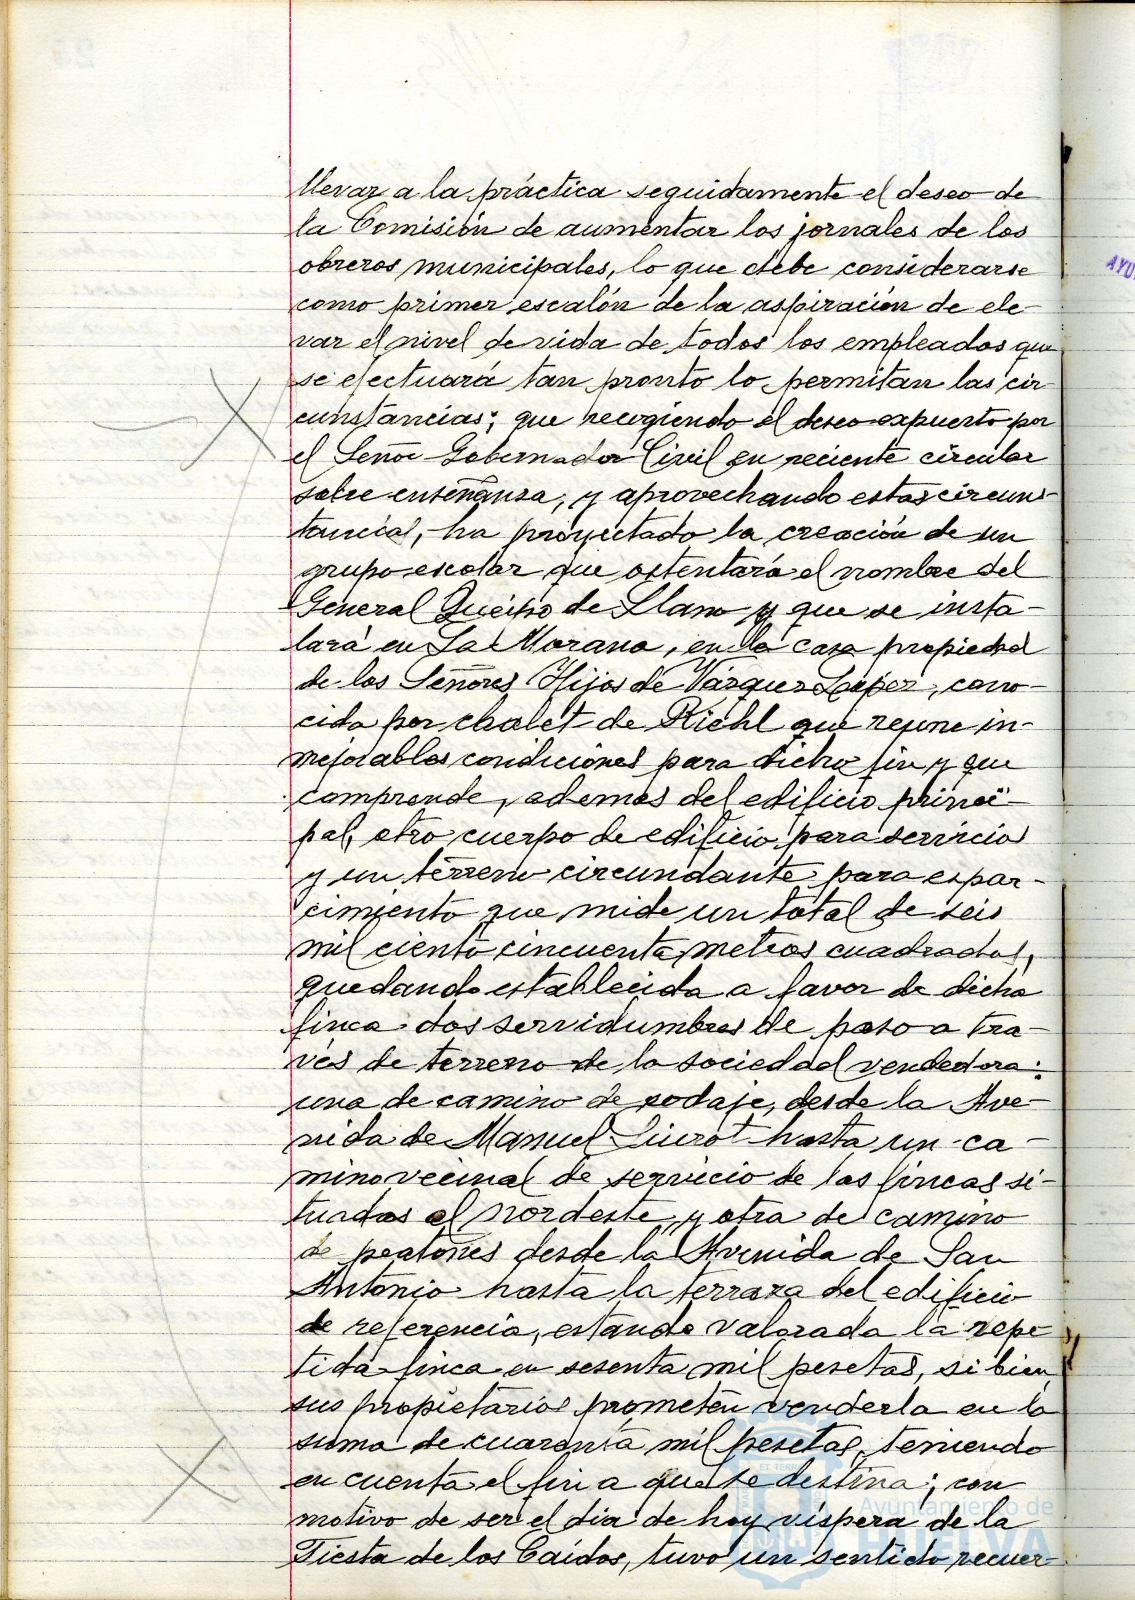 llevar a la práctica seguidamente el deseo de
la Comisión de aumentar los jornales de los
obreros municipales, lo que debe considerarse
como primer escalón de la aspiración de ele-
var el nivel de vida de todos los empleados que
se efectuará tan pronto lo permitan las cir-
cunstancias; que recogiendo el deseo expuesto por
el Señor Gobernador Civil en reciente circular
sobre enseñanza, y aprovechando estas circuns-
tancias, ha proyectado la creación de un
grupo escolar que ostentará el nombre del
General Queipo de Llano y que se insta-
lará en La Morana, en la casa propiedad
de los Señores Hijos de Vázquez López, cono-
cida por chalet de Riehl que reune in-
mejorables condiciones para dicho fin y que
comprende, ademas del edificio princi-
pal, otro cuerpo de edificio para servicios
y un terreno circundante para espar-
cimiento que mide un total de seis
mil ciento cincuenta metros cuadrados,
quedando establecida a favor de dicha
finca dos servidumbres de paso a tra-
vés de terreno de la sociedad vendedora:
una de camino de rodaje, desde la Ave-
nida de Manuel Siurot hasta un ca-
mino vecinal de servicio de las fincas si-
tuadas al nordeste, y otra de camino
de peatones desde la Avenida de San
Antonio hasta la terraza del edificio
de referencia, estando valorada la repe-
tida finca en sesenta mil pesetas, si bien
sus propietarios prometen venderla en la
suma de cuarenta mil pesetas, teniendo
en cuenta el fin a que se destina; con
motivo de ser el dia de hoy vispera de la
Fiesta de los Caidos, tuvo un sentido recuer-
Ayuntamiento de
HUELVA
AYU